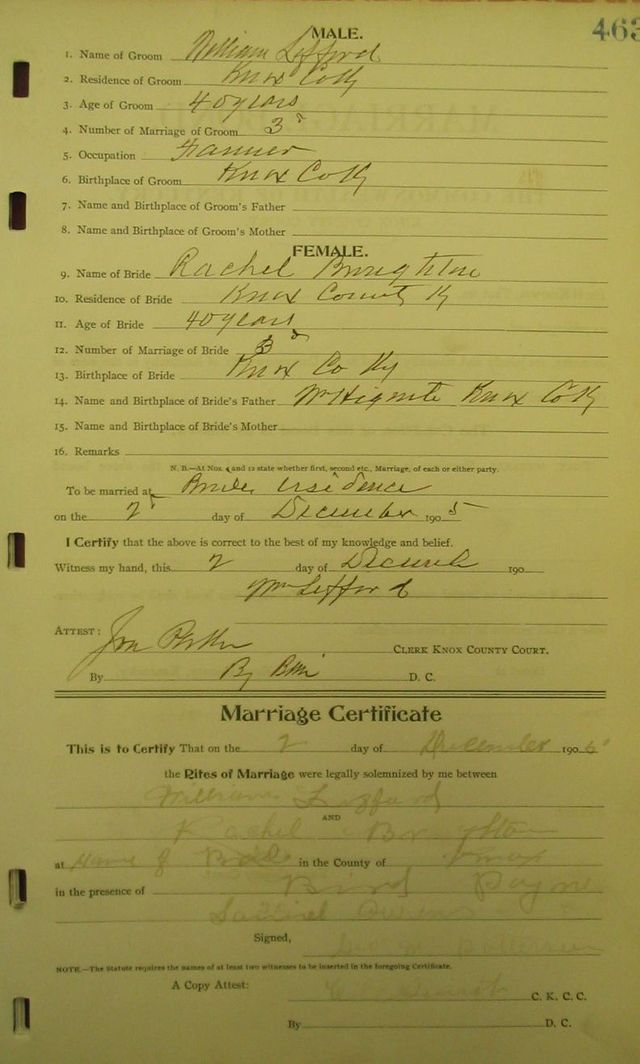 463
MALE.
1. Name of Groom William Lefford
2. Residence of Groom Knox Co Ky
3. Age of Groom 40 years
4. Number of Marriage of Groom 3d
5. Occupation Farmer
6. Birthplace of Groom Knox Co Ky
7. Name and Birthplace of Groom's Father
8. Name and Birthplace of Groom's Mother
FEMALE.
9. Name of Bride Rachel Broughton
10. Residence of Bride Knox County Ky
11. Age of Bride 40 years
12. Number of Marriage of Bride 3d
13. Birthplace of Bride Knox Co Ky
14. Name and Birthplace of Bride's Father Wm Hignite Knox Co Ky
15. Name and Birthplace of Bride's Mother
16. Remarks
N. B.—At Nos. 4 and 12 state whether first, second etc., Marriage, of each or either party.
To be married at Brides residence
on the 2 day of December 1905
I Certify that the above is correct to the best of my knowledge and belief.
Witness my hand, this 2 day of December 190
Wm Lefford
ATTEST:
CLERK KNOX COUNTY COURT.
By D. C.
Marriage Certificate
This is to Certify That on the 2 day of December 1905
the Rites of Marriage were legally solemnized by me between
William
AND
Rachel
at Home of Bride in the County of Knox
in the presence of Payne
Owens
Signed,
NOTE.—The Statute requires the names of at least two witnesses to be inserted in the foregoing Certificate.
A Copy Attest: C. K. C. C.
By D. C.